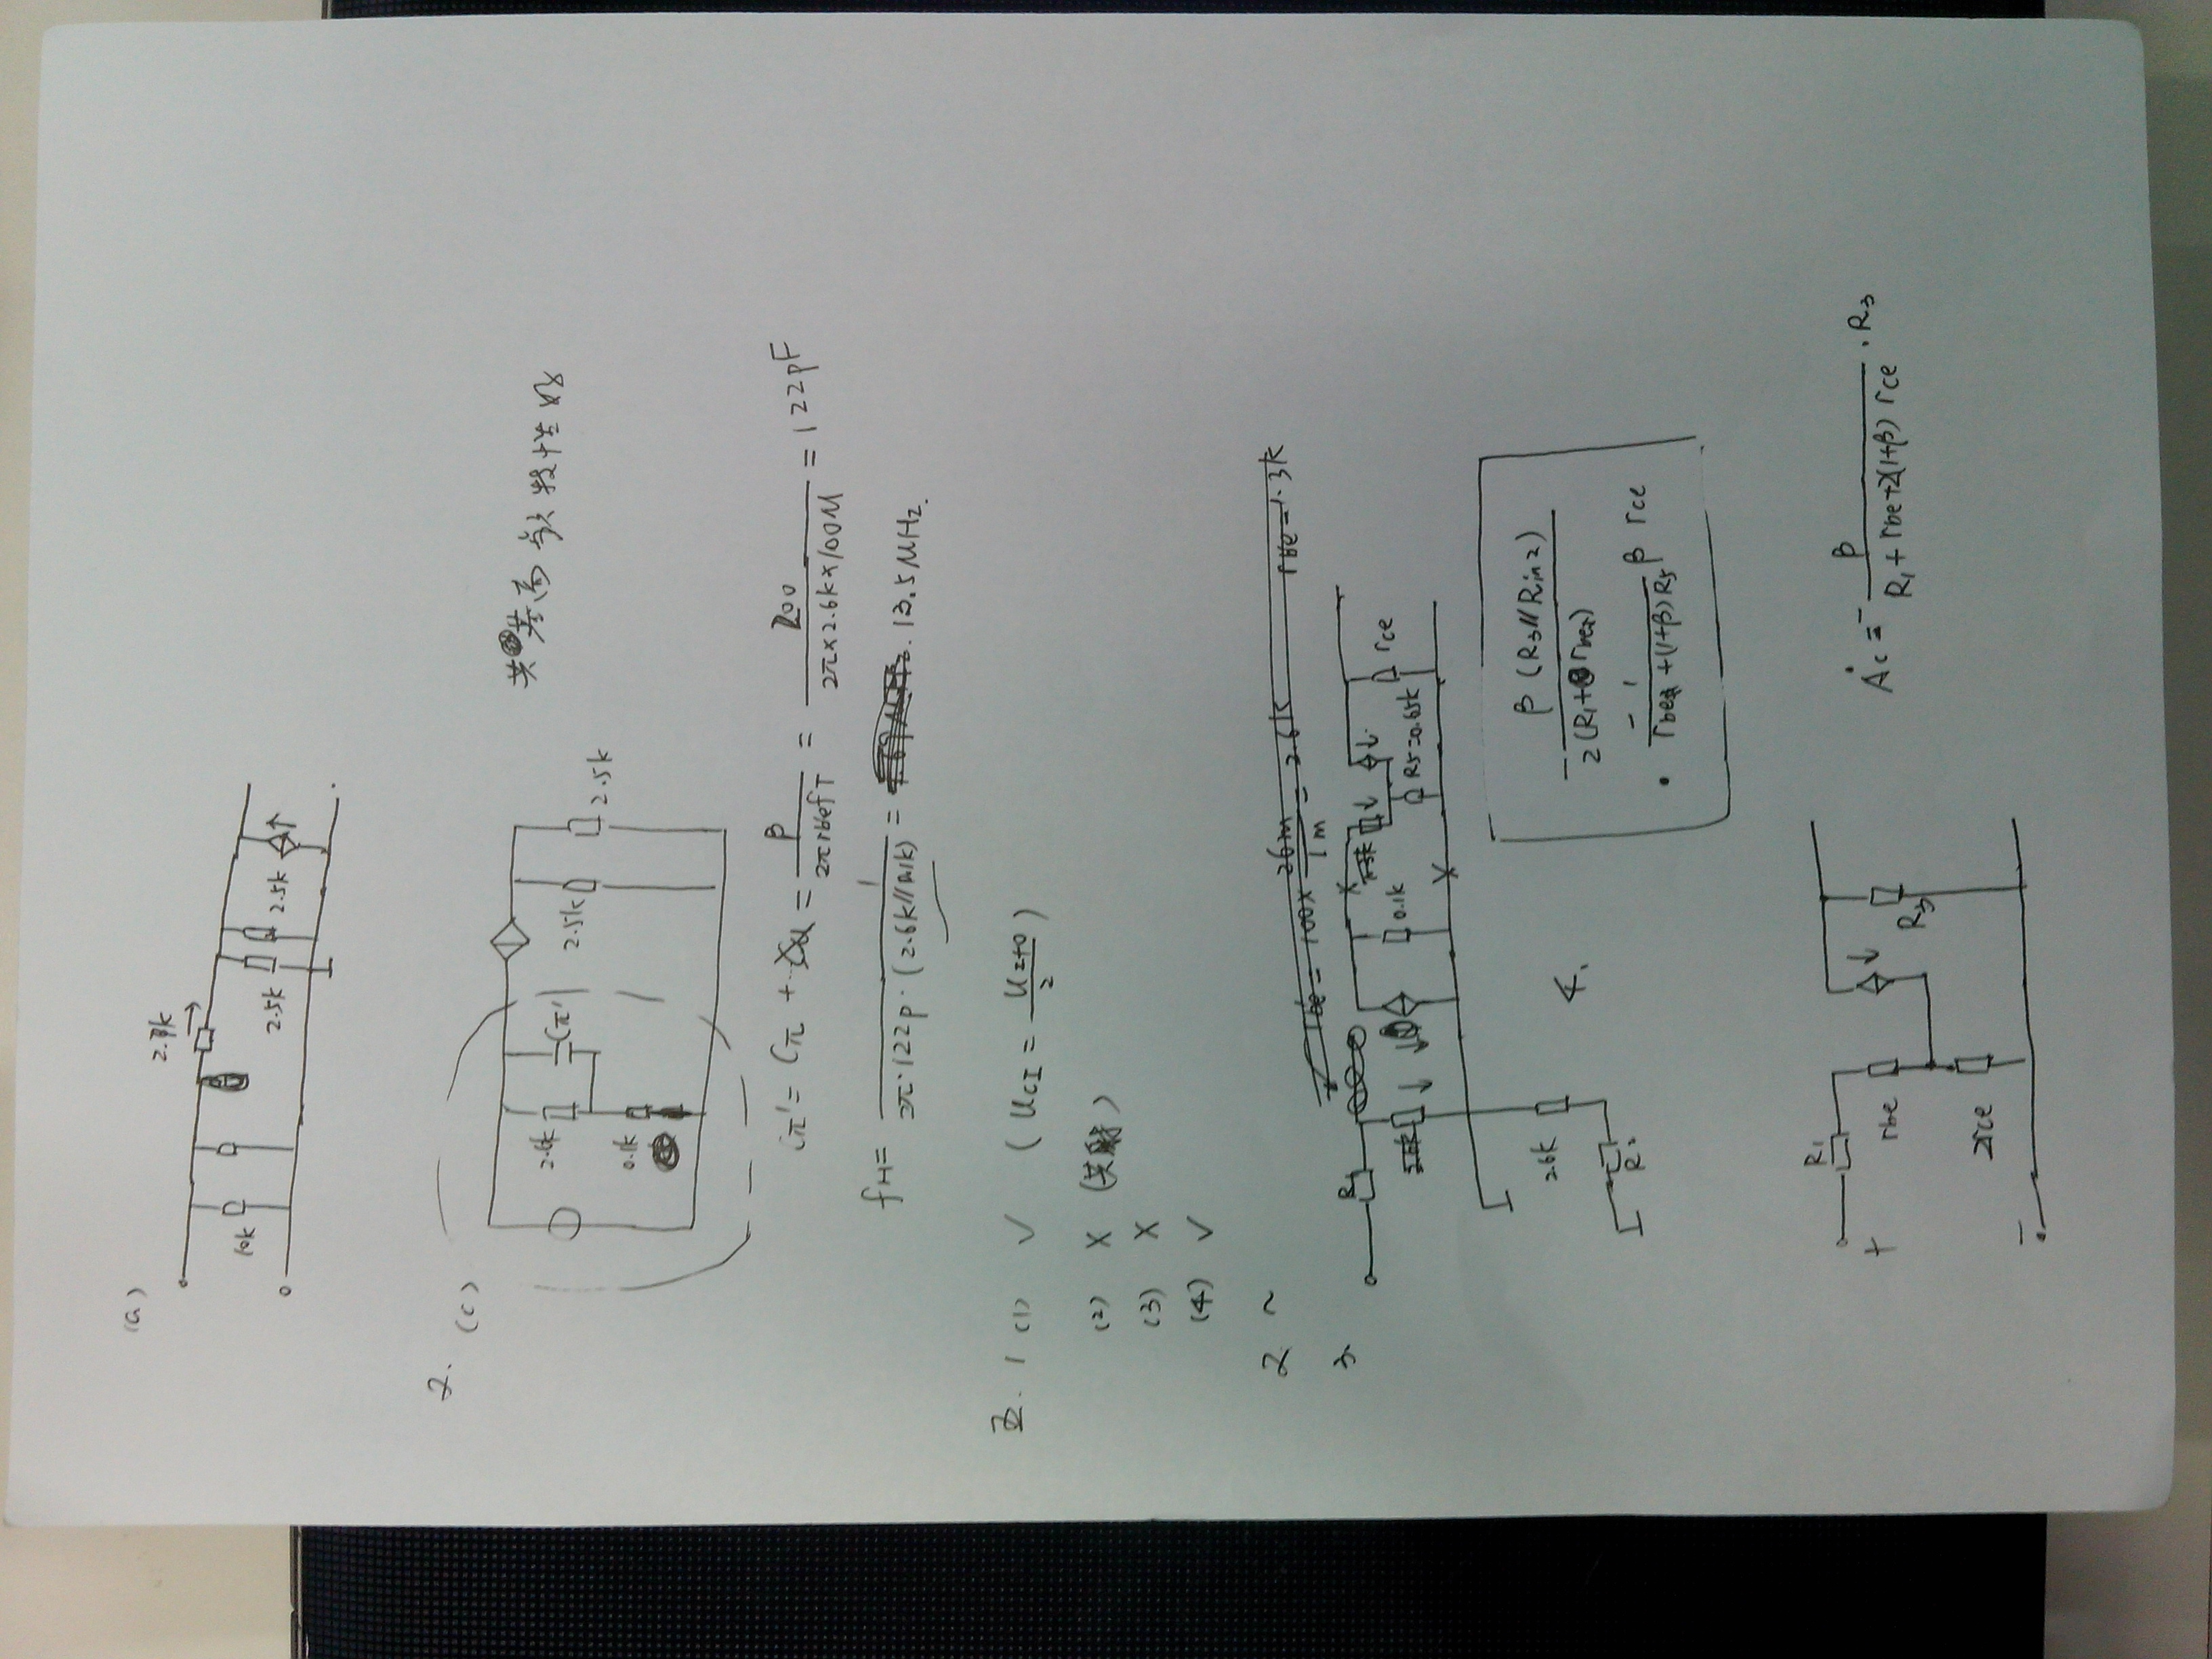 (a)
2.7k
10k
2.5k
2.5k
2.
(c)
2.6k
Cπ'
2.5k
2.5k
0.1k
共基高频特性好
Cπ' = Cπ + = β / 2π rb'e fT = 200 / 2π×2.6k×100M = 122pF
fH = 1 / 2π·122p·(2.6k//0.1k) = 13.5MHz.
五. 1 (1) ✓ (UCI = UI+0 / 2)
(2) × (共射)
(3) ×
(4) ✓
2 ~
rb'e = 100× 26m / 1m = 2.6k rb'e = 1.3k
3.
R1
0.1k
R5=0.65k
rce
2.6k
R2
4.
- β (R3//Rin2) / 2(R1+rbe2)
· -1 / rbe3+(1+β)R5 β rce
R1
+
rbe
R3
2rce
-
Ȧc = - β / R1+rbe+2(1+β) rce · R3